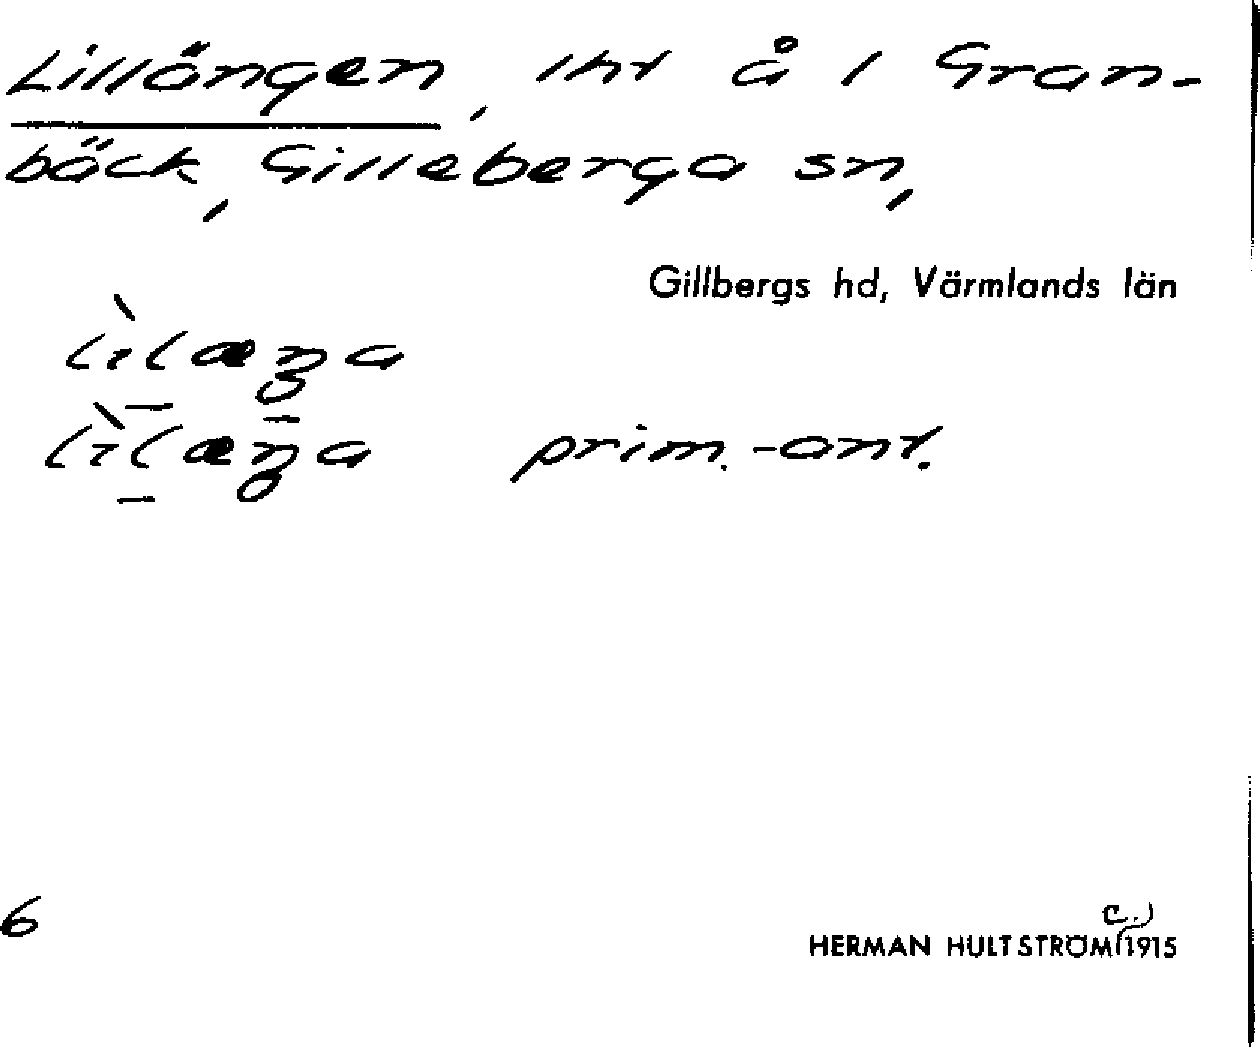 Lillängen, lht å 1 Gran-
bäck, Gilleberga sn,
Gillbergs hd, Värmlands län
prim.-ant.
6
c.
HERMAN HULTSTRÖM 1915